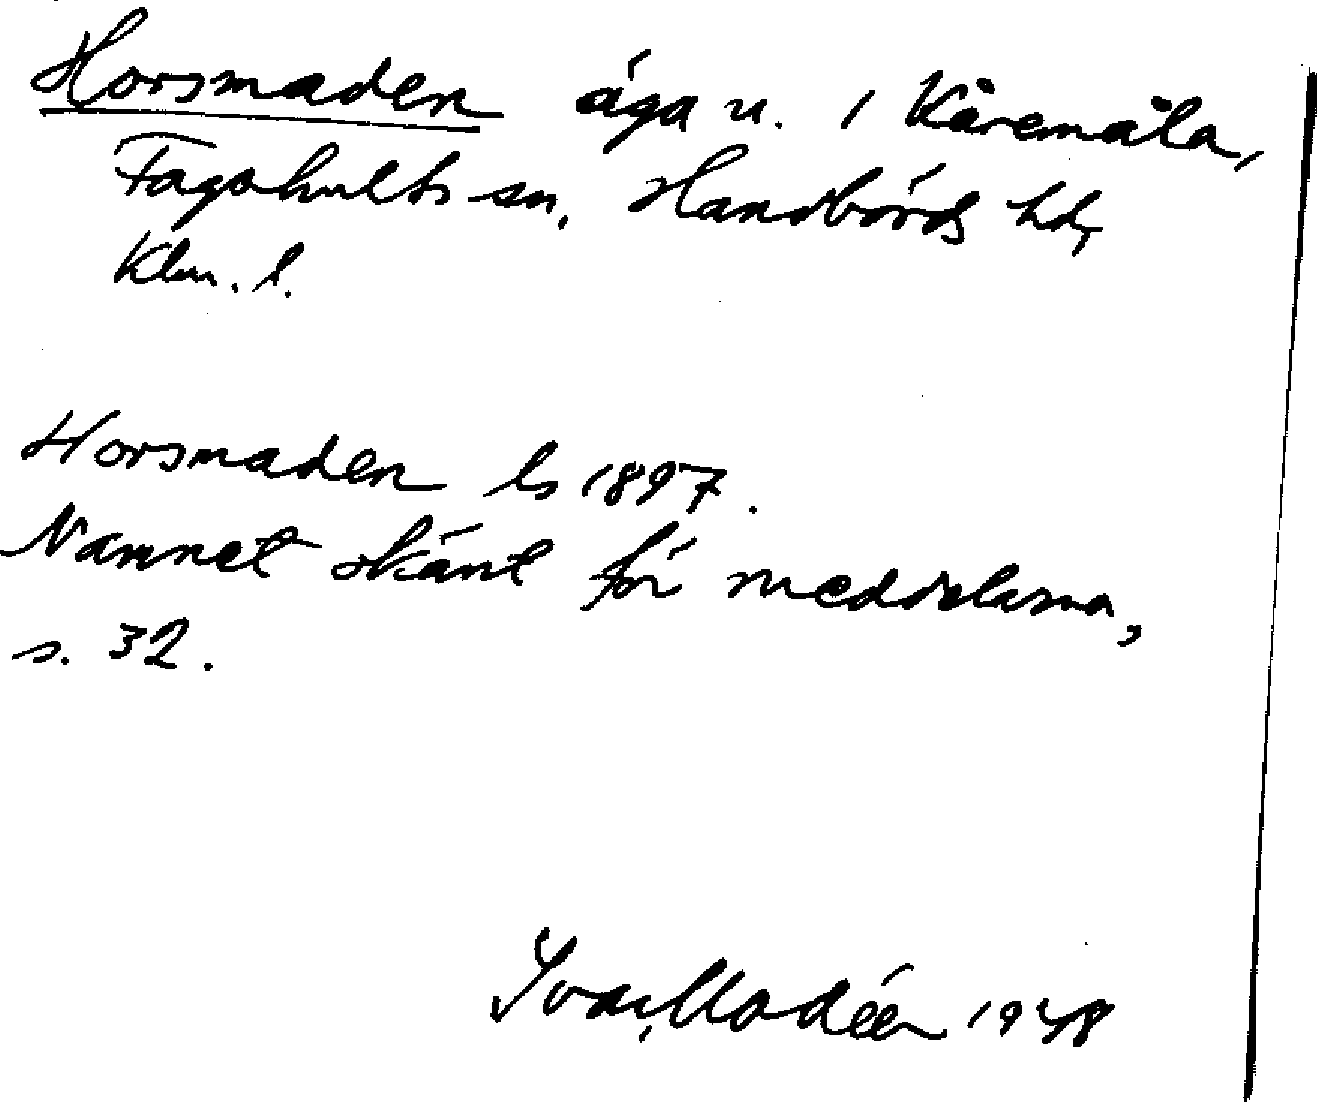 Horsmaden äga u. i Kåremåla,
Fagerhults sn, Handbörds hd,
Klm. l.
Horsmaden ls 1897.
Namnet okänt för meddelarna,
s. 32.
Ivar Modéer 1948